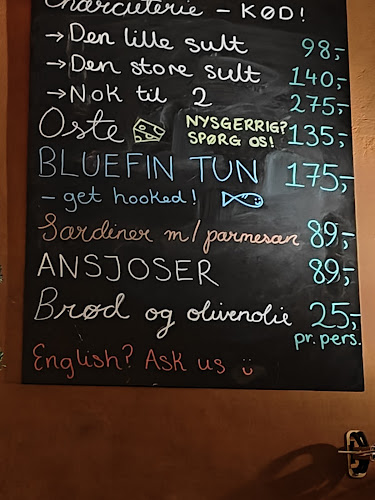 Charcuterie – KØD!
→ Den lille sult 98,-
→ Den store sult 140,-
→ Nok til 2 275,-
Oste NYSGERRIG? SPØRG OS! 135,-
BLUEFIN TUN 175,-
– get hooked!
Sardiner m/ parmesan 89,-
ANSJOSER 89,-
Brød og olivenolie 25,-
pr. pers.
English? Ask us